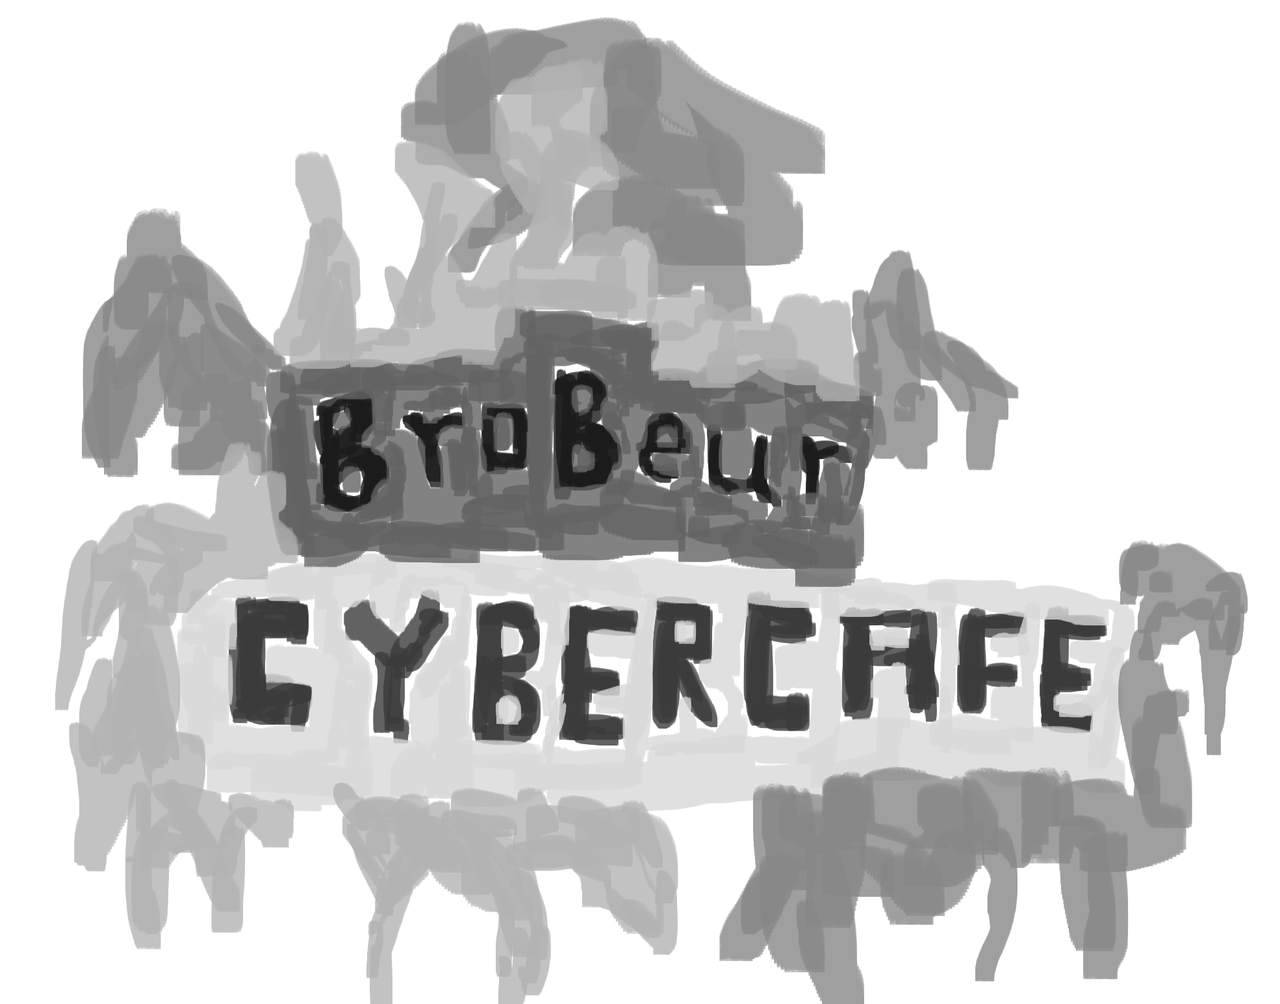 BroBeur
CYBERCAFE